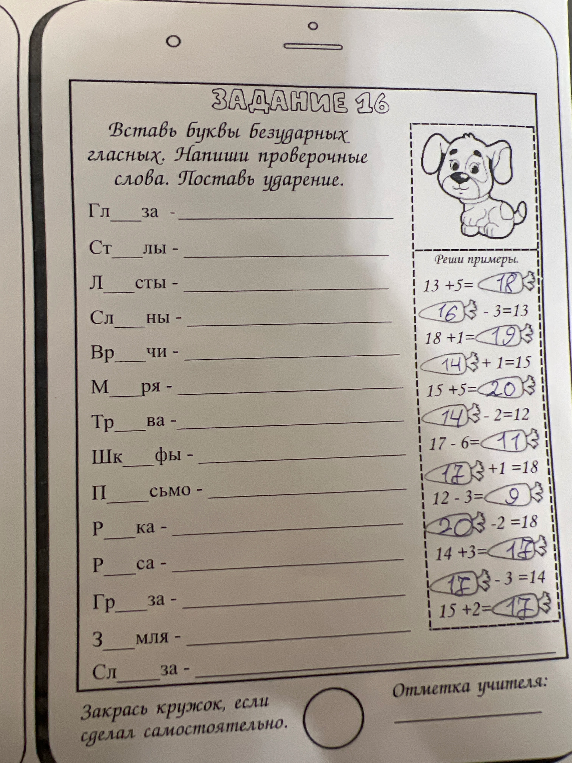 ЗАДАНИЕ 16
Вставь буквы безударных
гласных. Напиши проверочные
слова. Поставь ударение.
Гл___за - ______________
Ст___лы - ______________
Л___сты - ______________
Сл___ны - ______________
Вр___чи - ______________
М___ря - ______________
Тр___ва - ______________
Шк___фы - ______________
П____сьмо - ______________
Р___ка - ______________
Р___са - ______________
Гр___за - ______________
З___мля - ______________
Сл____за - ______________
Реши примеры.
13 +5= 18
16 - 3=13
18 +1= 19
14 + 1=15
15 +5= 20
14 - 2=12
17 - 6= 11
17 +1 =18
12 - 3= 9
20 -2 =18
14 +3= 17
17 - 3 =14
15 +2= 17
Закрась кружок, если
сделал самостоятельно.
Отметка учителя: